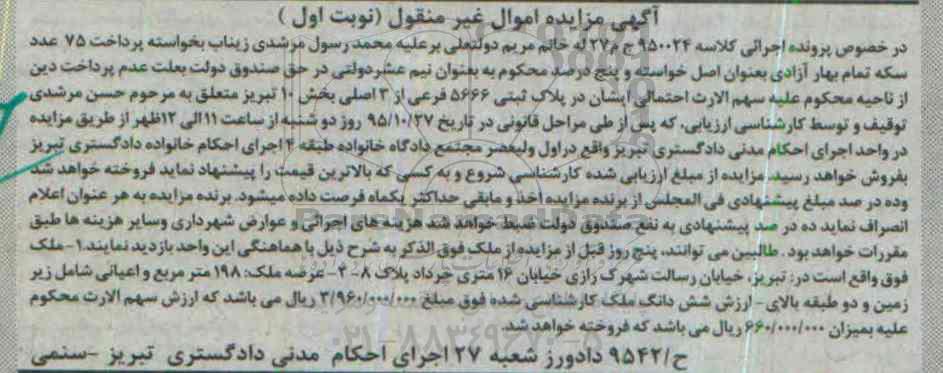 آگهی مزایده اموال غیر منقول (نوبت اول )
در خصوص پرونده اجرائی کلاسه ۹۵۰۰۲۴ ج م ۲۷ له خانم مریم دولتعلی بر علیه محمد رسول مرشدی زیناب بخواسته پرداخت ۷۵ عدد
سکه تمام بهار آزادی بعنوان اصل خواسته و پنج درصد محکوم به بعنوان نیم عشر دولتی در حق صندوق دولت بعلت عدم پرداخت دین
از ناحیه محکوم علیه سهم الارث احتمالی ایشان در پلاک ثبتی ۵۶۶۶ فرعی از ۳ اصلی بخش ۱۰ تبریز متعلق به مرحوم حسن مرشدی
توقیف و توسط کارشناسی ارزیابی، که پس از طی مراحل قانونی در تاریخ ۹۵/۱۰/۲۷ روز دو شنبه از ساعت ۱۱ الی ۱۲ ظهر از طریق مزایده
در واحد اجرای احکام مدنی دادگستری تبریز واقع در اول ولیعصر مجتمع دادگاه خانواده طبقه ۴ اجرای احکام خانواده دادگستری تبریز
بفروش خواهد رسید. مزایده از مبلغ ارزیابی شده کارشناسی شروع و به کسی که بالاترین قیمت را پیشنهاد نماید فروخته خواهد شد
وده در صد مبلغ پیشنهادی فی المجلس از برنده مزایده اخذ و مابقی حداکثر یکماه فرصت داده میشود. برنده مزایده به هر عنوان اعلام
انصراف نماید ده در صد پیشنهادی به نفع صندوق دولت ضبط خواهد شد هزینه های اجرائی و عوارض شهرداری وسایر هزینه ها طبق
مقررات خواهد بود . طالبین می توانند، پنج روز قبل از مزایده از ملک فوق الذکر به شرح ذیل با هماهنگی این واحد بازدید نمایند.۱-ملک
فوق واقع است در: تبریز، خیابان رسالت شهرک رازی خیابان ۱۶ متری خرداد پلاک ۸ -۲- عرصه ملک: ۱۹۸ متر مربع و اعیانی شامل زیر
زمین و دو طبقه بالای - ارزش شش دانگ ملک کارشناسی شده فوق مبلغ ۳/۹۶۰/۰۰۰/۰۰۰ ریال می باشد که ارزش سهم الارث محکوم
علیه بمیزان ۶۶۰/۰۰۰/۰۰۰ ریال می باشد که فروخته خواهد شد.
ح/۹۵۴۲ دادورز شعبه ۲۷ اجرای احکام مدنی دادگستری تبریز -سنمی
ParsNamadData
۰۲۱-۸۸۳۴۹۶۷۰-۵